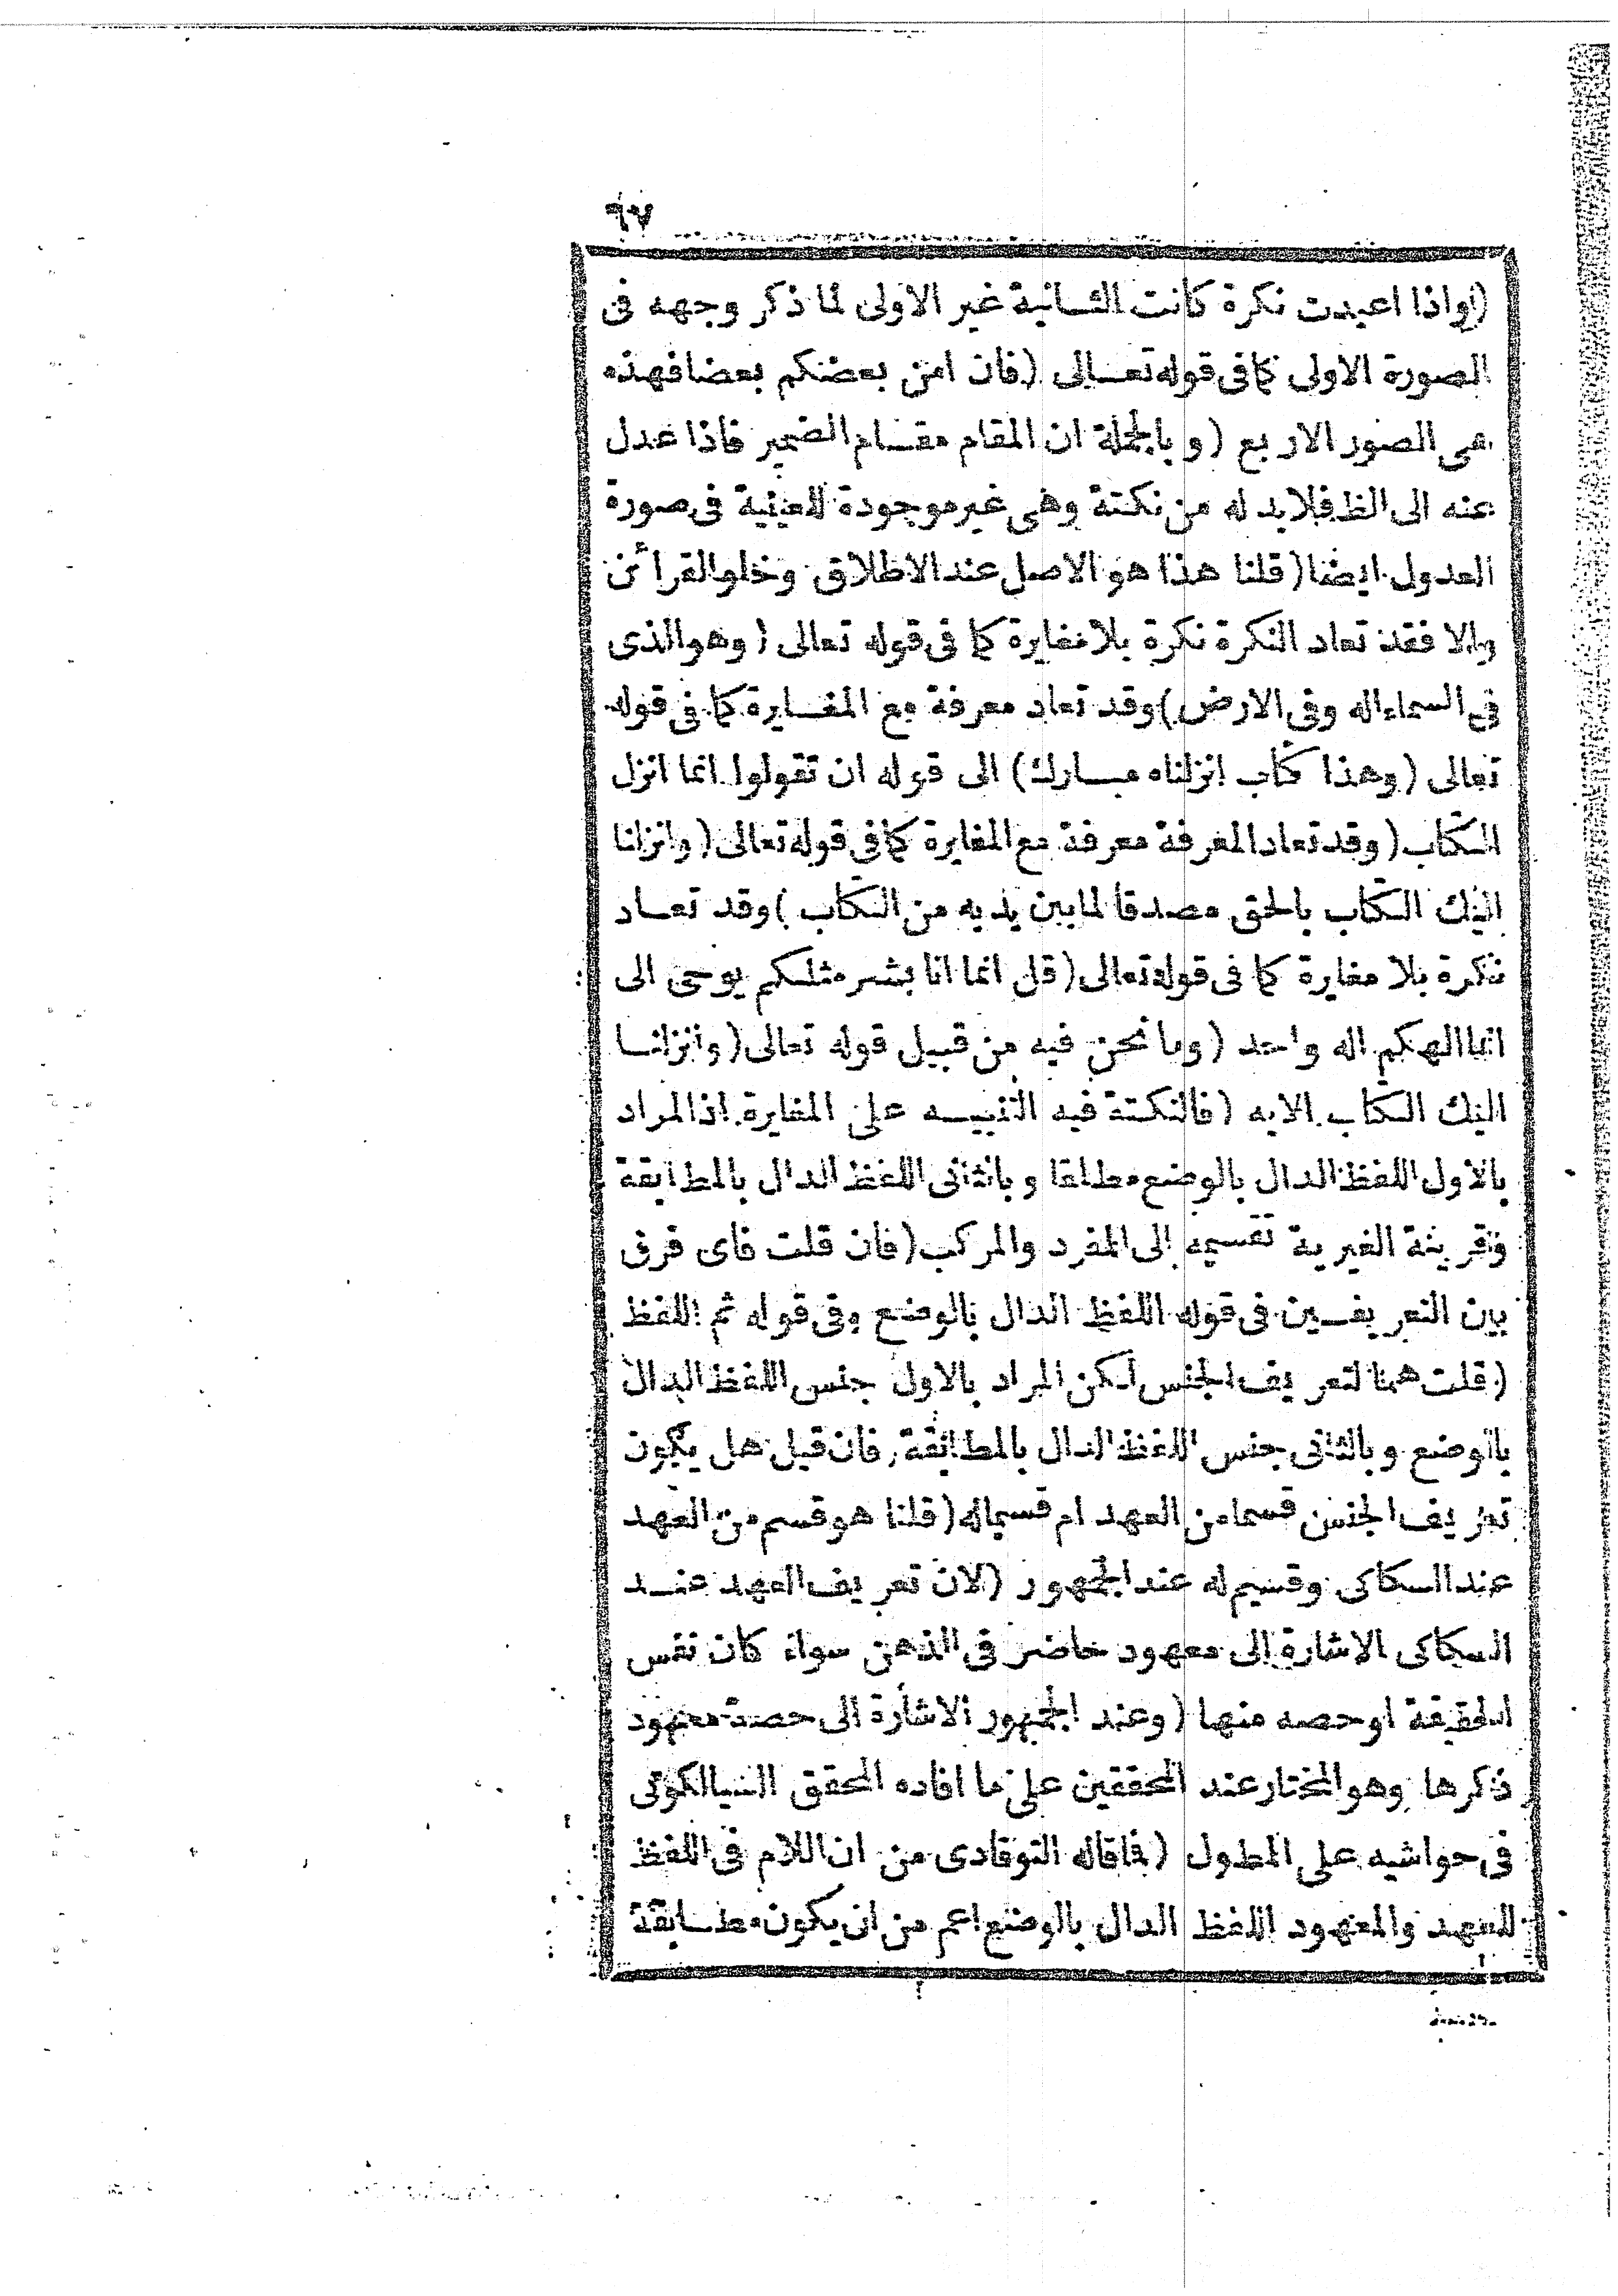 ٩٧
(واذا اعيدت نكرة كانت الثانية غير الاولى لما ذكر وجهه فى
الصورة الاولى كما فى قوله تعالى (فان امن بعضكم بعضا فهذه
هى الصور الاربع (وبالجملة ان المقام مقام الضمير فاذا عدل
عنه الى الظ فلابد له من نكتة وهى غير موجودة للعينية فى صورة
العدول ايضا (قلنا هذا هو الاصل عند الاطلاق وخلو القرائن
والا فقد تعاد النكرة نكرة بلا مغايرة كما فى قوله تعالى (وهو الذى
فى السماء اله وفى الارض) وقد تعاد معرفة مع المغايرة كما فى قوله
تعالى (وهذا كتاب انزلناه مبارك) الى قوله ان تقولوا انما انزل
الكتاب (وقد تعاد المعرفة معرفة مع المغايرة كما فى قوله تعالى (وانزلنا
اليك الكتاب بالحق مصدقا لما بين يديه من الكتاب) وقد تعاد
نكرة بلا مغايرة كما فى قوله تعالى (قل انما انا بشر مثلكم يوحى الى
انما الهكم اله واحد (وما نحن فيه من قبيل قوله تعالى (وانزلنا
اليك الكتاب الايه (فالنكتة فيه التنبيه على المغايرة اذ المراد
بالاول اللفظ الدال بالوضع مطلقا وبالثانى اللفظ الدال بالمطابقة
وقرينة الغيرية تقسيمه الى المفرد والمركب (فان قلت فاى فرق
بين التعريفين فى قوله اللفظ الدال بالوضع وفى قوله ثم اللفظ
(قلت هما لتعريف الجنس لكن المراد بالاول جنس اللفظ الدال
بالوضع وبالثانى جنس اللفظ الدال بالمطابقة فان قيل هل يكون
تعريف الجنس قسما من العهد ام قسيماله (قلنا هو قسم من العهد
عند السكاكى وقسيم له عند الجمهور (لان تعريف العهد عند
السكاكى الاشارة الى معهود حاضر فى الذهن سواء كان نفس
الحقيقة او حصه منها (وعند الجمهور الاشارة الى حصة معهود
ذكرها وهو المختار عند المحققين على ما افاده المحقق السيالكوتى
فى حواشيه على المطول (فما قاله التوقادى من ان اللام فى اللفظ
للعهد والمعهود اللفظ الدال بالوضع اعم من ان يكون مطابقة